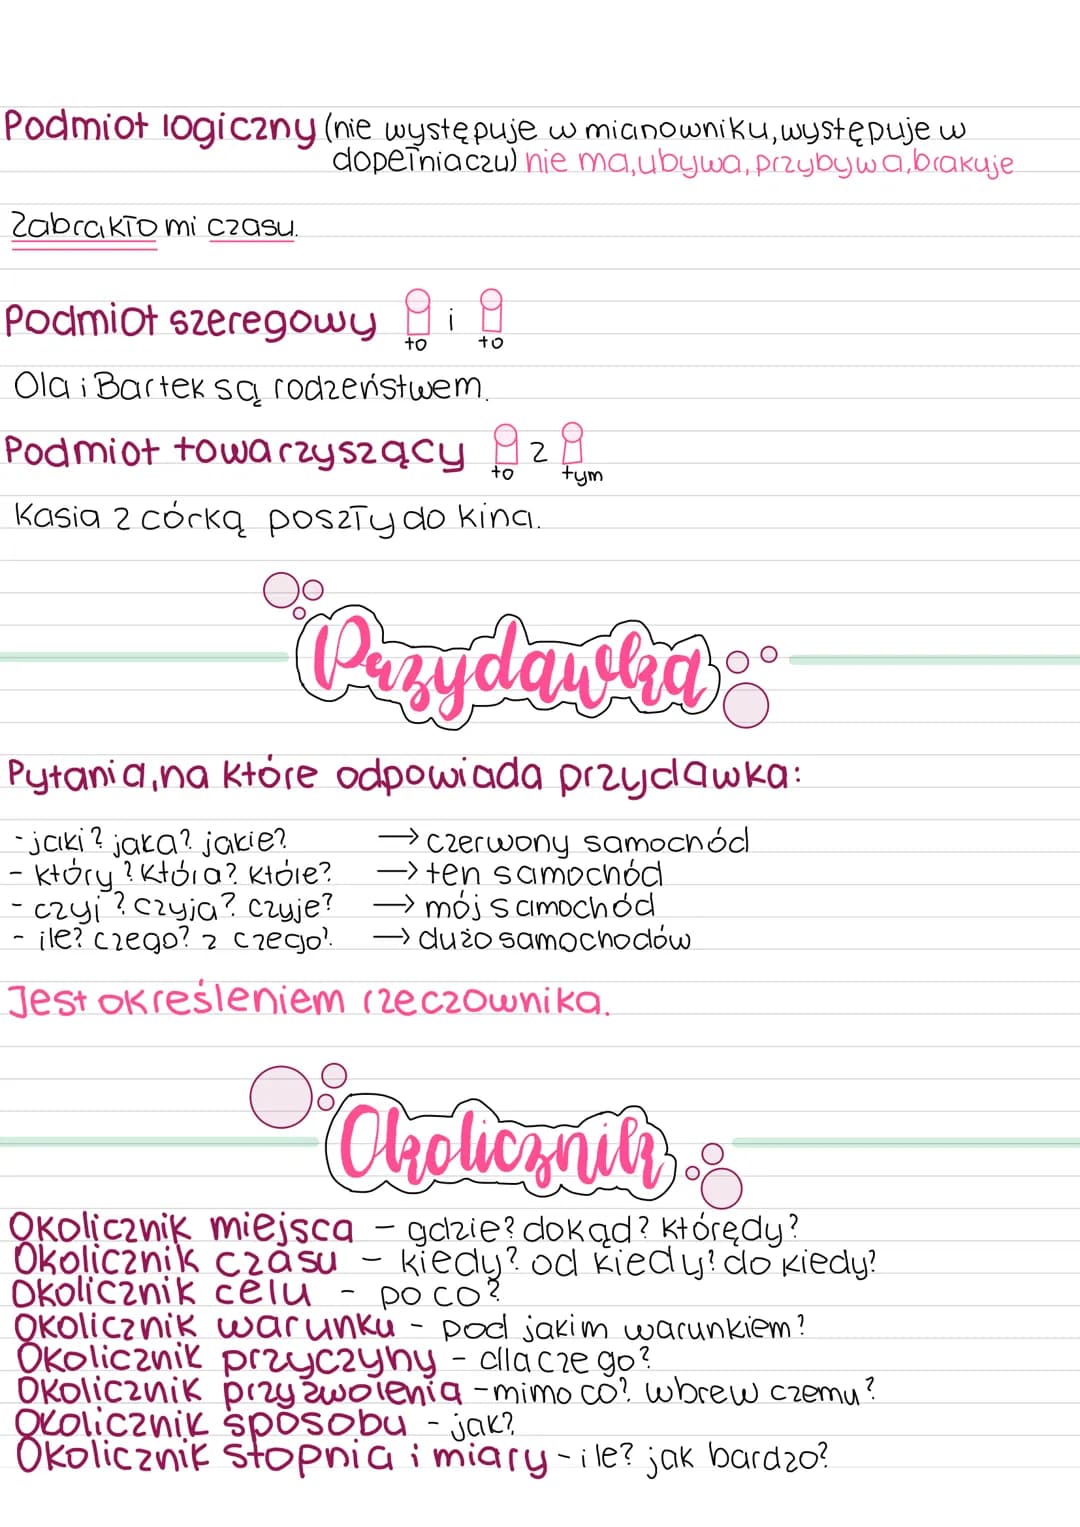 Podmiot logiczny (nie występuje w mianowniku, występuje w
dopełniaczu) nie ma, ubywa, przybywa, brakuje
Zabrakło mi czasu.
Podmiot szeregowy i
to to
Ola i Bartek są rodzeństwem.
Podmiot towarzyszący z
to tym
Kasia z córką poszły do kina.
Przydawka
Pytania, na które odpowiada przydawka:
- jaki? jaka? jakie? → czerwony samochód
- który? która? które? → ten samochód
- czyj? czyja? czyje? → mój samochód
- ile? czego? z czego? → dużo samochodów
Jest określeniem rzeczownika.
Okolicznik
Okolicznik miejsca - gdzie? dokąd? którędy?
Okolicznik czasu - kiedy? od kiedy? do kiedy?
Okolicznik celu - po co?
Okolicznik warunku - pod jakim warunkiem?
Okolicznik przyczyny - dlaczego?
Okolicznik przyzwolenia - mimo co? wbrew czemu?
Okolicznik sposobu - jak?
Okolicznik stopnia i miary - ile? jak bardzo?